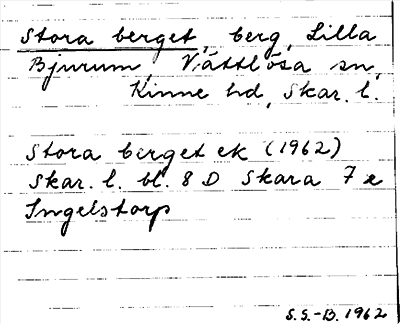 Stora berget, berg, Lilla
Bjurum, Vättlösa sn,
Kinne hd, Skar. l.
Stora berget ek (1962)
Skar. l. bl. 8 D Skara 7 e
Ingelstorp
S.S.-B. 1962